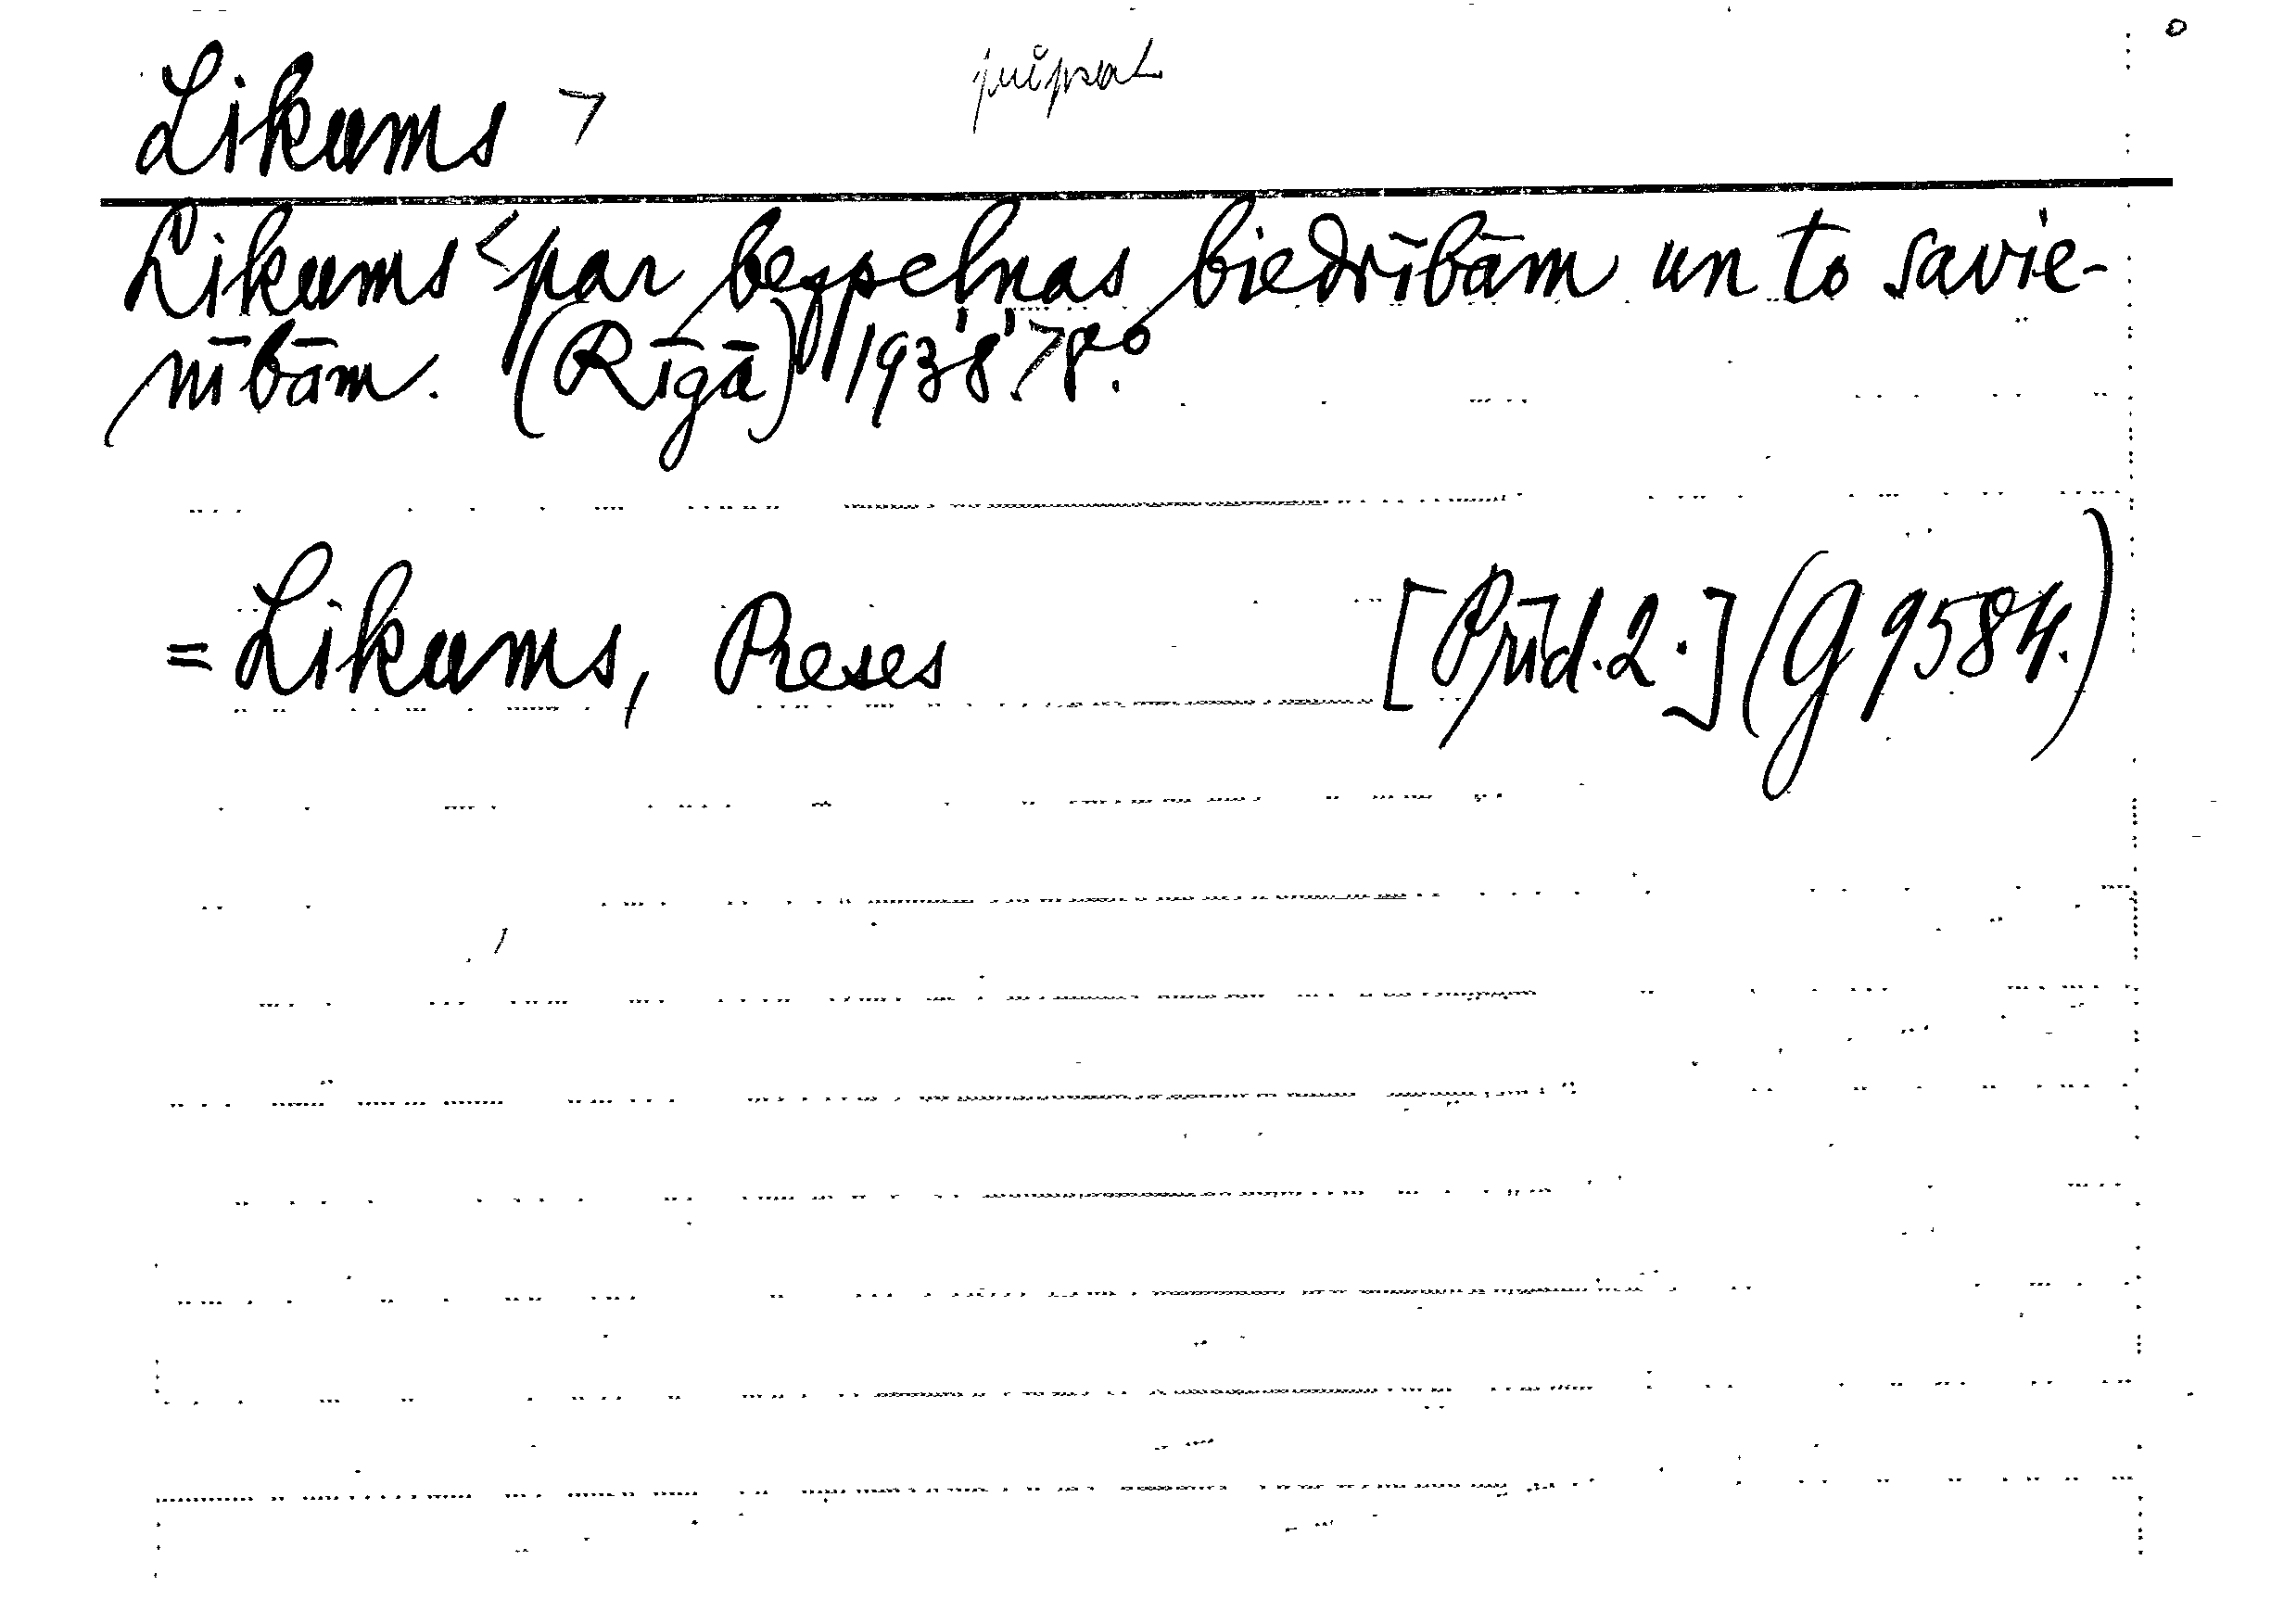 Likums >
Likums < par bezpelnas biedrībām un to savie-
nībām. (Rīgā) 1938. > 8°.
= Likums, Preses [Přid. 2.] (G 9584.)